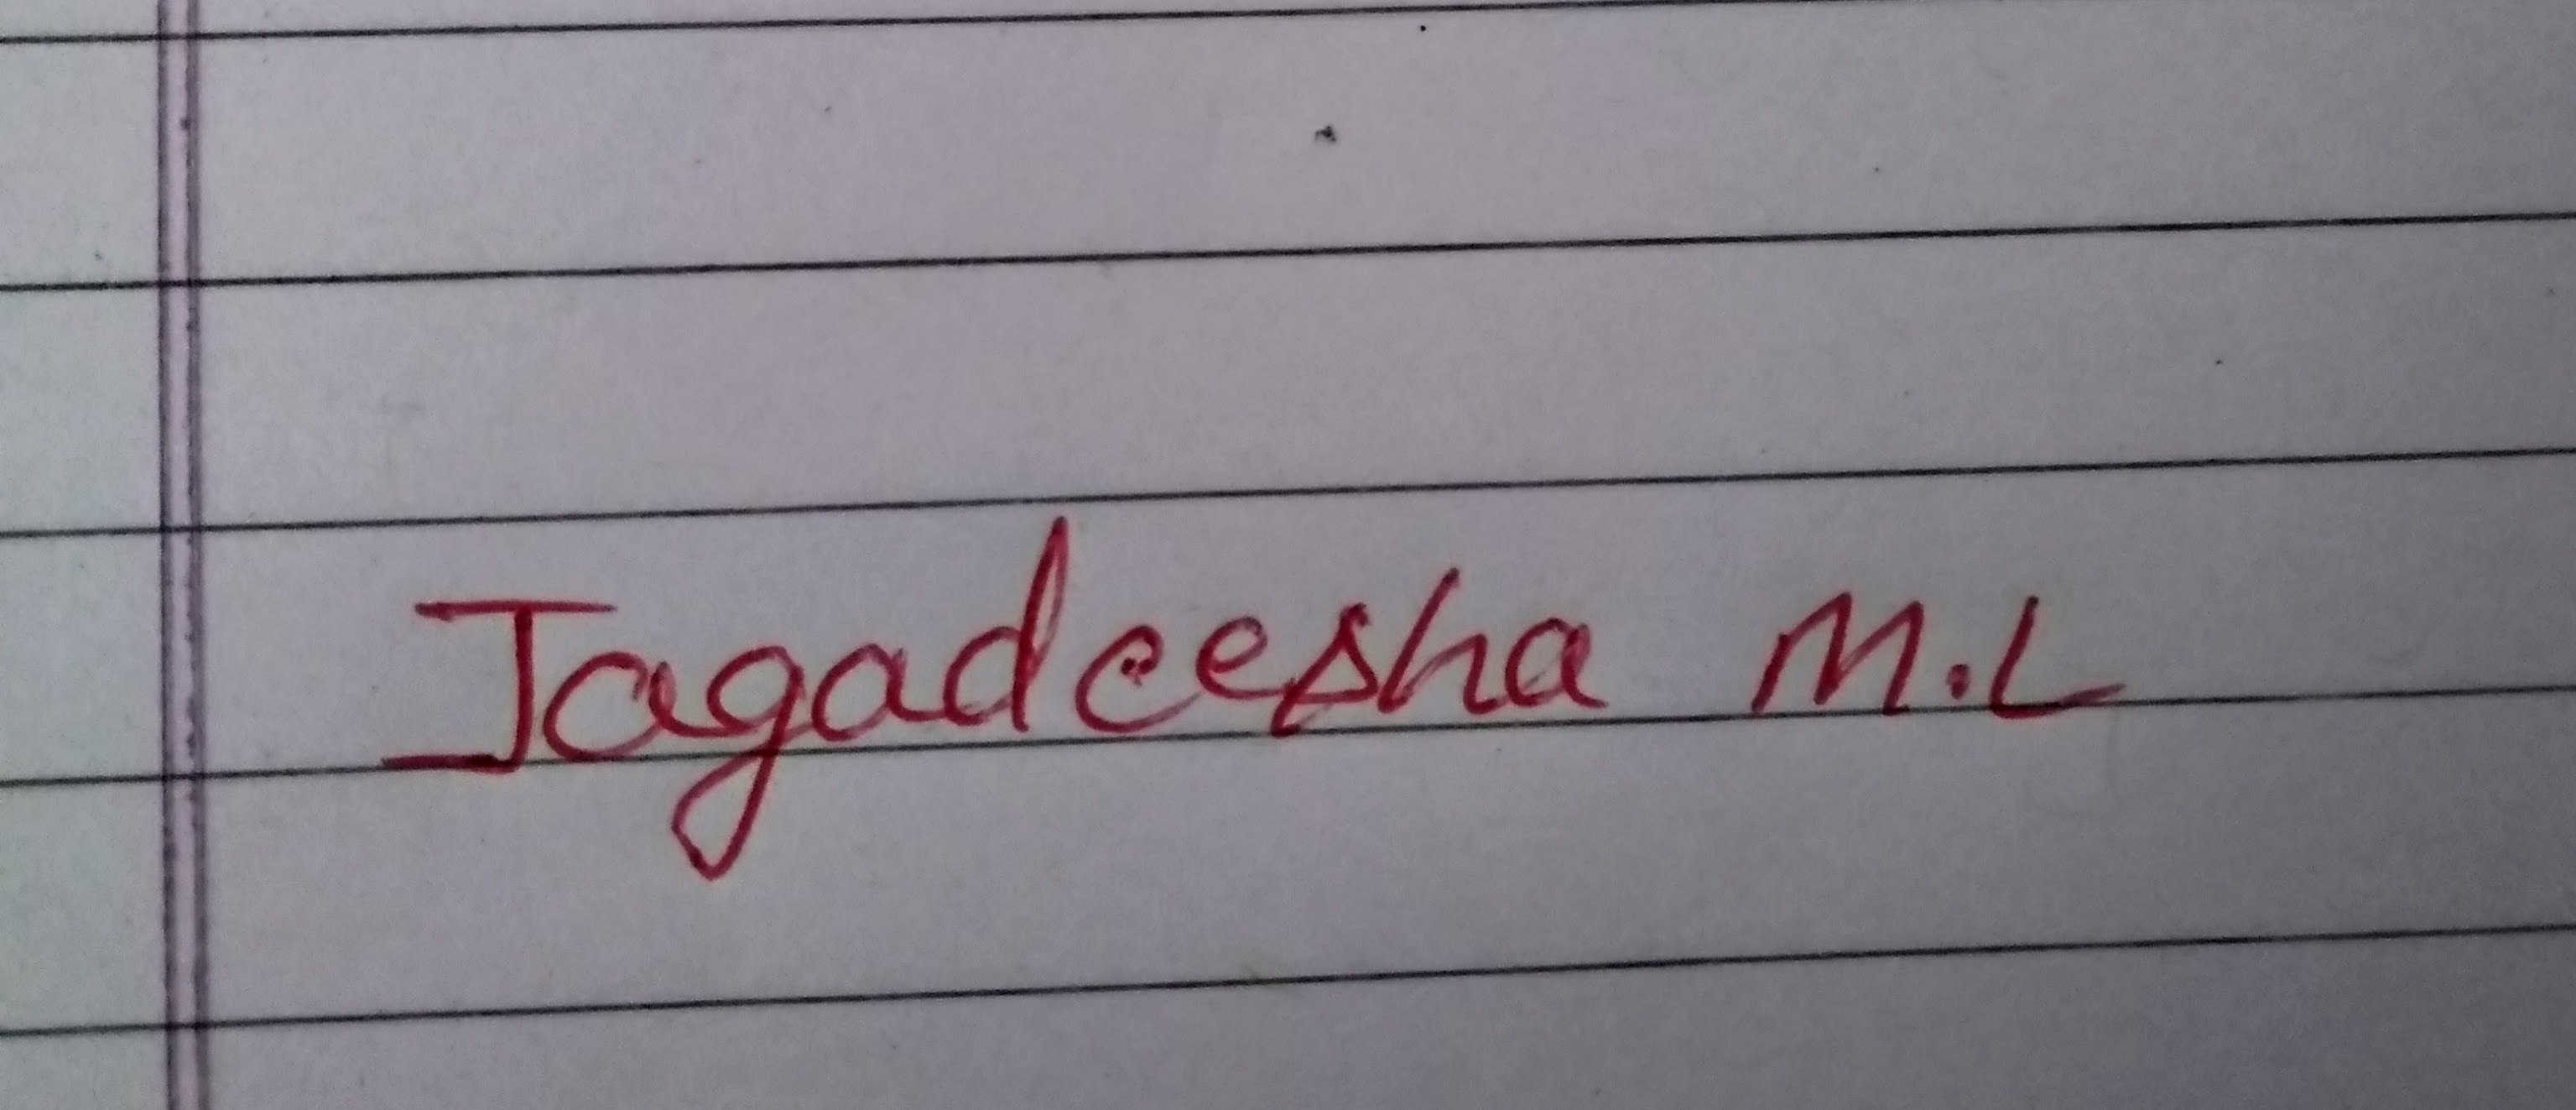 Jagadeesha M.L